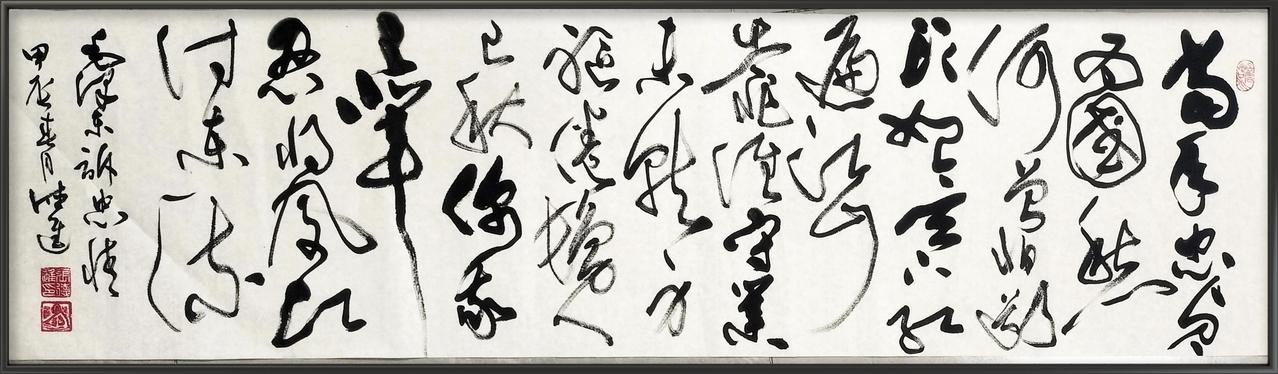 当年忠贞
为國愁
何曾怕断
头如今天下红
遍江山
靠谁守業
未就身
躯倦鬓
已秋你我
之辈
忍将夙愿
付东流
毛泽东诉忠情
甲辰春月